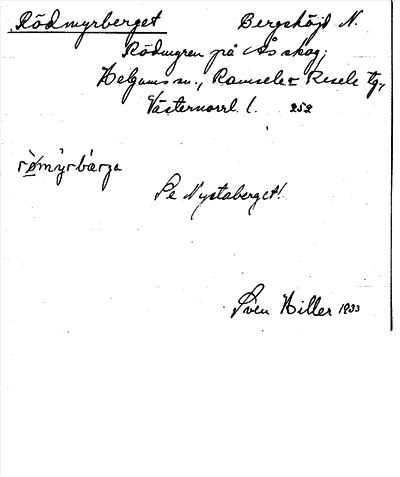 Rödmyrberget Bergshöjd N.
Rödmyren på Ås skog;
Helgums sn., Ramsele o Resele tg,
Västernorrl. l. 252
rø̀myrbærga
Se Nystaberget!
Sven Hiller 1933